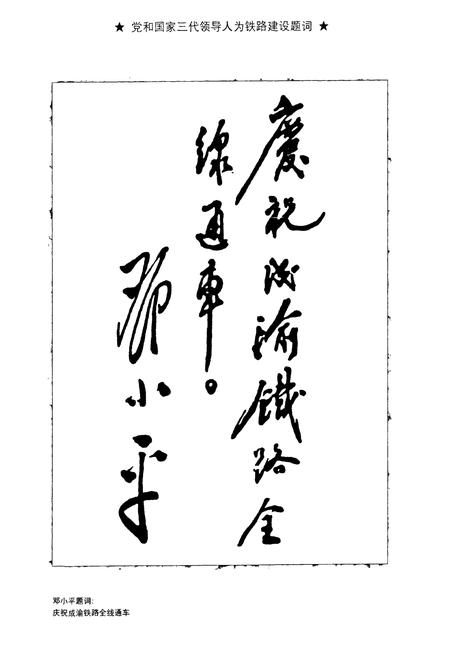 ★ 党和国家三代领导人为铁路建设题词 ★
慶祝成渝鐵路全
線通車。
邓小平
邓小平题词:
庆祝成渝铁路全线通车